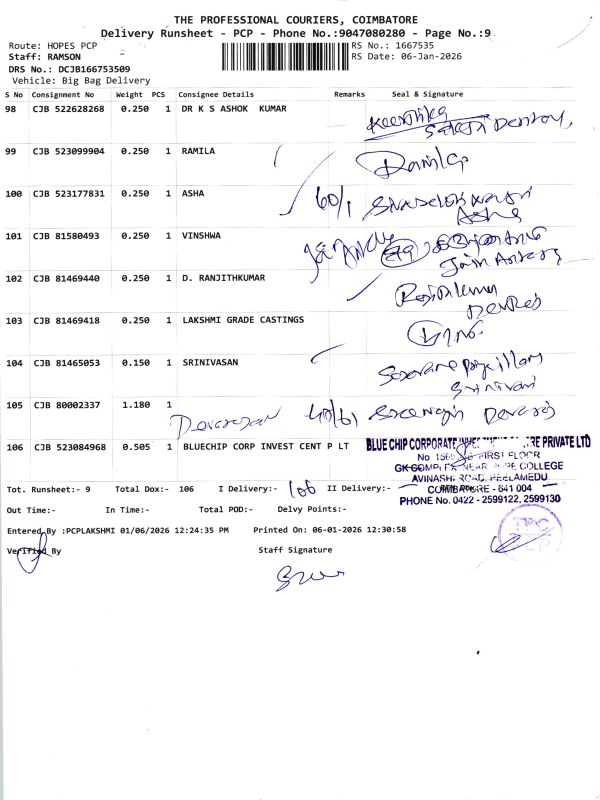 THE PROFESSIONAL COURIERS, COIMBATORE
Delivery Runsheet - PCP - Phone No.:9047080280 - Page No.:9
Route: HOPES PCP
RS No.: 1667535
Staff: RAMSON
RS Date: 06-Jan-2026
DRS No.: DCJB166753509
Vehicle: Big Bag Delivery
S No Consignment No Weight PCS Consignee Details Remarks Seal & Signature
98 CJB 522628268 0.250 1 DR K S ASHOK KUMAR
99 CJB 523099904 0.250 1 RAMILA
100 CJB 523177831 0.250 1 ASHA
60/1
Asha
101 CJB 81580493 0.250 1 VINSHWA
102 CJB 81469440 0.250 1 D. RANJITHKUMAR
103 CJB 81469418 0.250 1 LAKSHMI GRADE CASTINGS
104 CJB 81465053 0.150 1 SRINIVASAN
105 CJB 80002337 1.180 1
Devarajan
106 CJB 523084968 0.505 1 BLUECHIP CORP INVEST CENT P LT
BLUE CHIP CORPORATE PRIVATE LTD
FIRST FLOOR
GK COMPLEX NEAR HOPE COLLEGE
AVINASHI ROAD, PEELAMEDU
COIMBATORE - 641 004
PHONE No. 0422 - 2599122, 2599130
Tot. Runsheet:- 9 Total Dox:- 106 I Delivery:- 106 II Delivery:-
Out Time:- In Time:- Total POD:- Delvy Points:-
Entered By :PCPLAKSHMI 01/06/2026 12:24:35 PM Printed On: 06-01-2026 12:30:58
Verified By Staff Signature